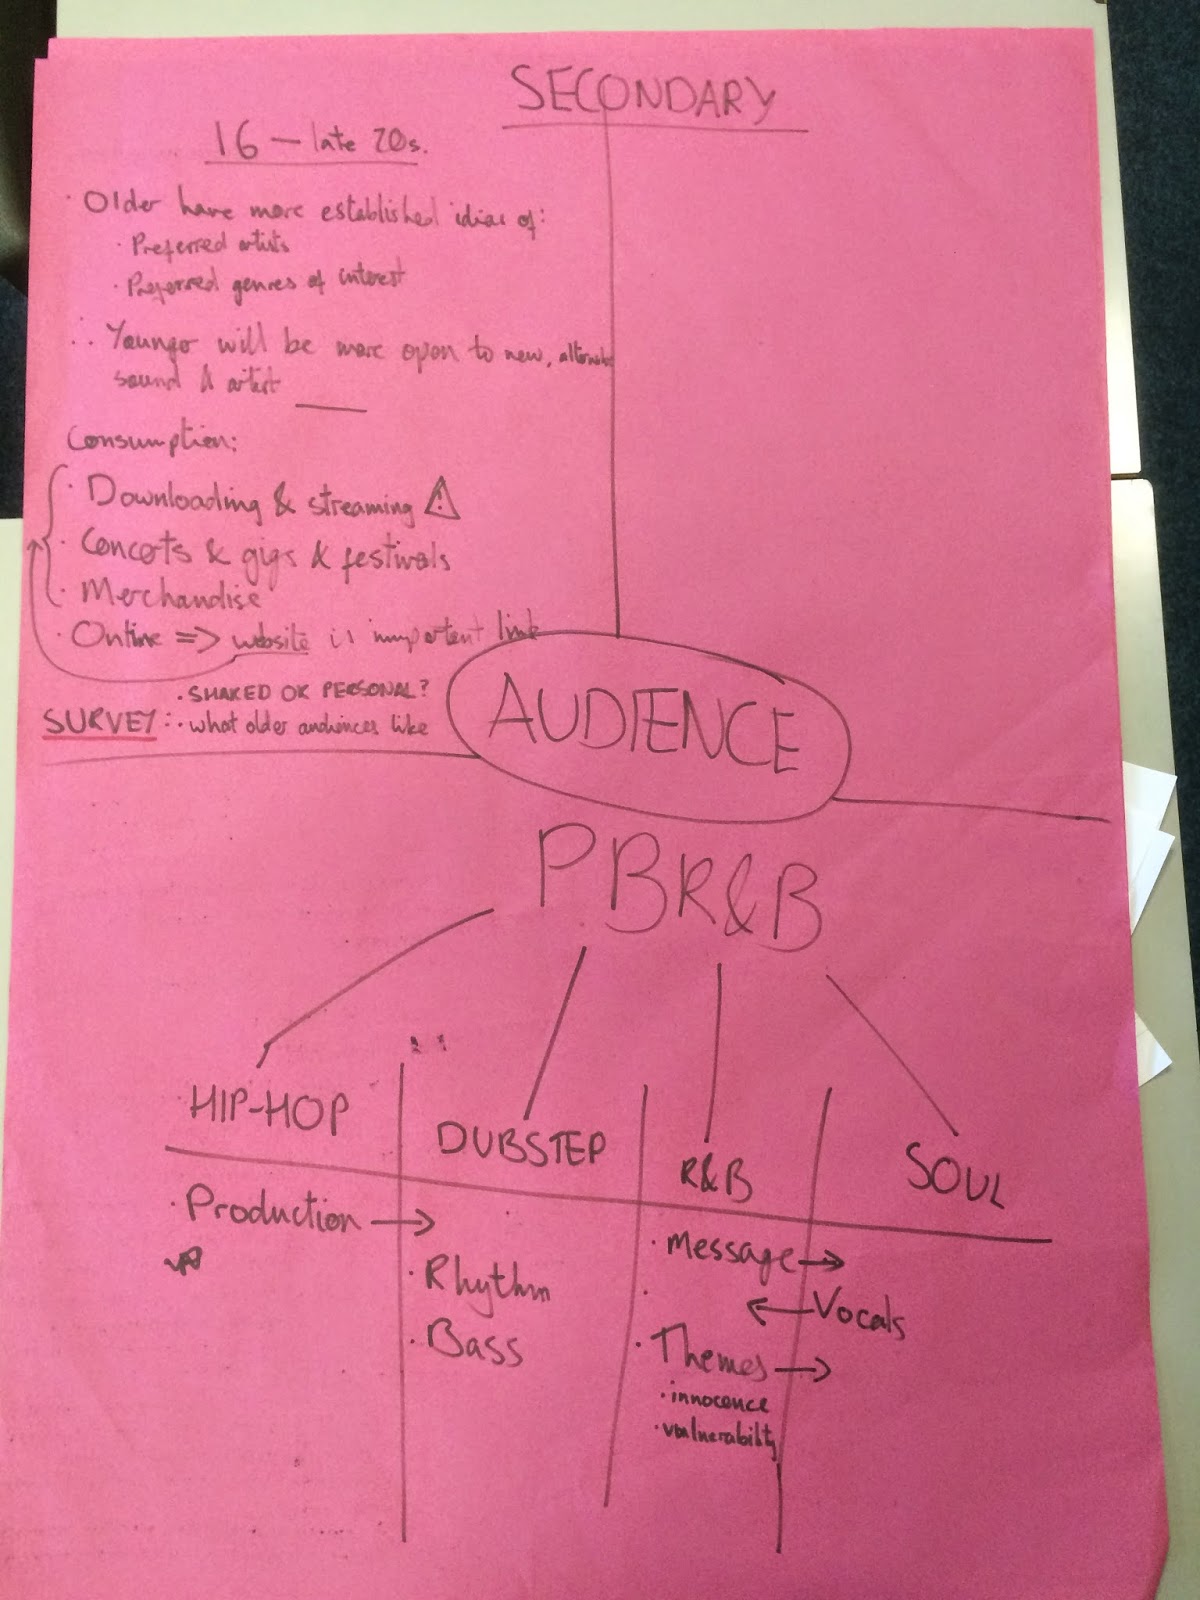 SECONDARY
16 – late 20s.
· Older have more established ideas of:
· Preferred artists
· Preferred genres of interest
∴ Younger will be more open to new,
sound & artist
Consumption:
· Downloading & streaming ⚠
· Concerts & gigs & festivals
· Merchandise
· Online => website is important link
· SHARED OR PERSONAL?
SURVEY: · what older audiences like
AUDIENCE
PBR&B
HIP-HOP
DUBSTEP
R&B
SOUL
· Production →
· Rhythm
· Bass
· Message →
← Vocals
· Themes →
· innocence
· vulnerability